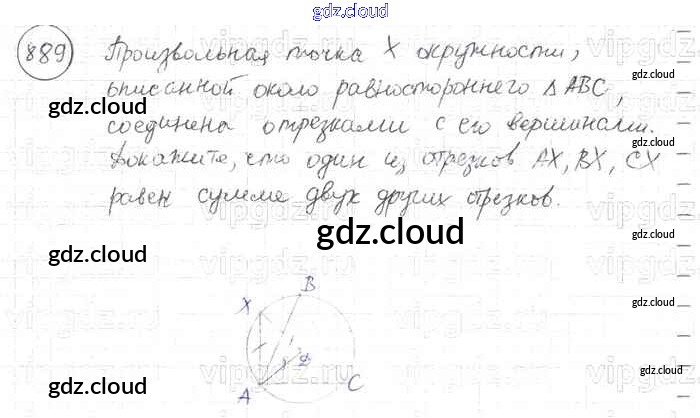 gdz.cloud
889 Произвольная точка X окружности,
описанной около равностороннего Δ ABC,
соединена отрезками с его вершинами.
Докажите, что один из отрезков AX, BX, CX
равен сумме двух других отрезков.
gdz.cloud
gdz.cloud
gdz.cloud
gdz.cloud
gdz.cloud
gdz.cloud
gdz.cloud
gdz.cloud
gdz.cloud
gdz.cloud
vipgdz.ru
B
X
A
C